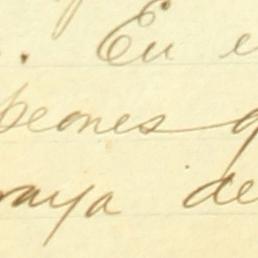 . En e
peones q
raya de